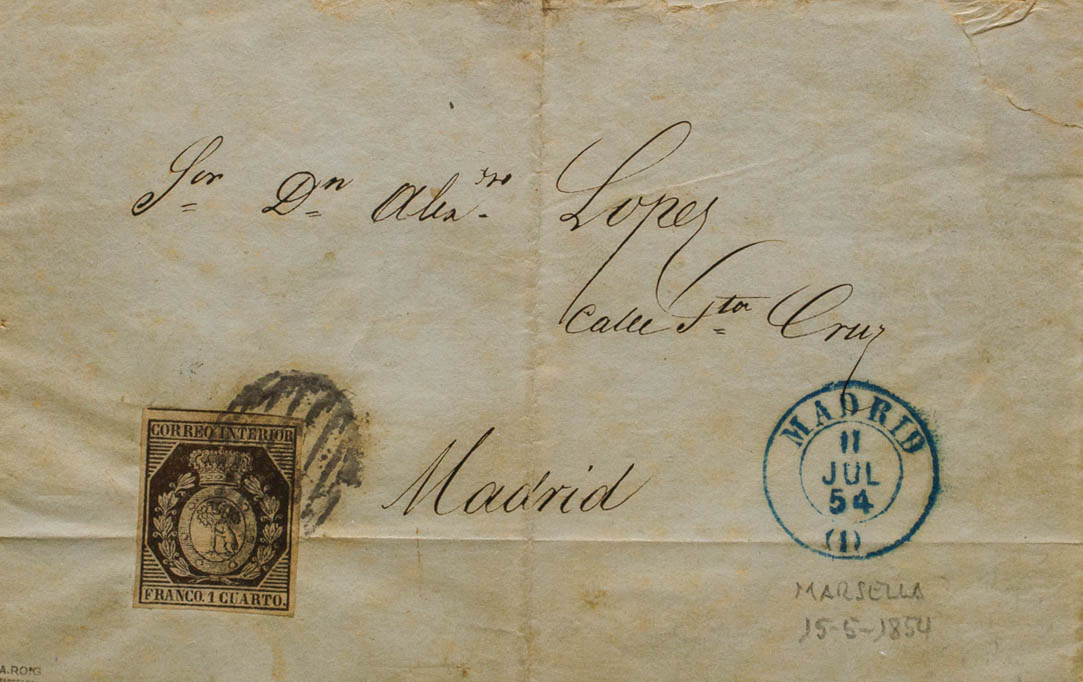 Sor Dn Alexdro Lopez
Calle Sta Cruz
Madrid
CORREO INTERIOR
FRANCO. 1 CUARTO.
MADRID
11
JUL
54
(1)
MARSELLA
15-5-1854
A.ROIG